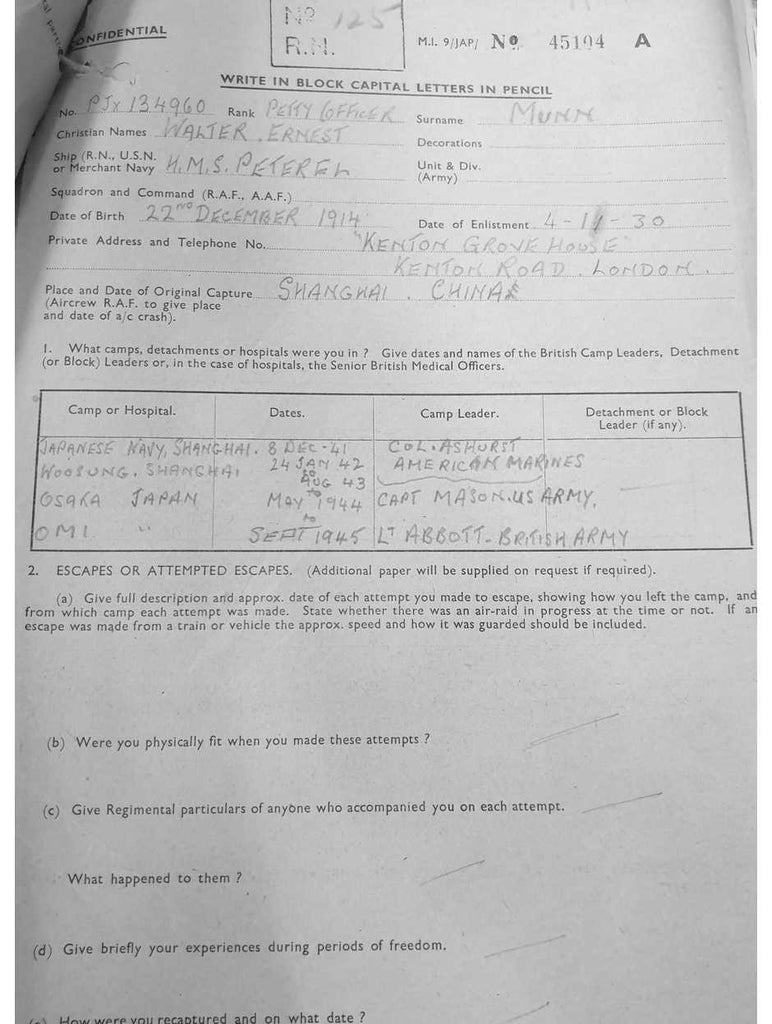 CONFIDENTIAL
No 125
R.N.
M.I. 9/JAP/ No 45104 A
WRITE IN BLOCK CAPITAL LETTERS IN PENCIL
No. PJX 134960 Rank PETTY OFFICER Surname MUNN
Christian Names WALTER ERNEST Decorations
Ship (R.N., U.S.N. or Merchant Navy H.M.S. PETEREL Unit & Div. (Army)
Squadron and Command (R.A.F., A.A.F.)
Date of Birth 22ND DECEMBER 1914 Date of Enlistment 4-11-30
Private Address and Telephone No. "KENTON GROVE HOUSE"
KENTON ROAD. LONDON.
Place and Date of Original Capture SHANGHAI. CHINA
(Aircrew R.A.F. to give place
and date of a/c crash).
1. What camps, detachments or hospitals were you in ? Give dates and names of the British Camp Leaders, Detachment
(or Block) Leaders or, in the case of hospitals, the Senior British Medical Officers.
Camp or Hospital. Dates. Camp Leader. Detachment or Block Leader (if any).
JAPANESE NAVY, SHANGHAI. 8 DEC-41 COL. ASHURST
WOOSUNG. SHANGHAI 24 JAN 42 AMERICAN MARINES
to AUG 43
OSAKA JAPAN MAY to 1944 CAPT MASON. US ARMY.
OMI " SEPT 1945 LT ABBOTT-BRITISH ARMY
2. ESCAPES OR ATTEMPTED ESCAPES. (Additional paper will be supplied on request if required).
(a) Give full description and approx. date of each attempt you made to escape, showing how you left the camp, and
from which camp each attempt was made. State whether there was an air-raid in progress at the time or not. If an
escape was made from a train or vehicle the approx. speed and how it was guarded should be included.
(b) Were you physically fit when you made these attempts ?
(c) Give Regimental particulars of anyone who accompanied you on each attempt.
What happened to them ?
(d) Give briefly your experiences during periods of freedom.
How were you recaptured and on what date ?